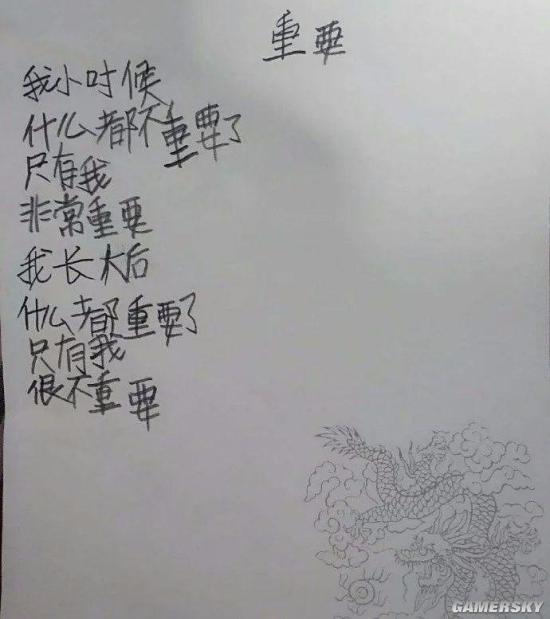 重要
我小时候
什么都不重要了
只有我
非常重要
我长大后
什么都重要了
只有我
很不重要
GAMERSKY